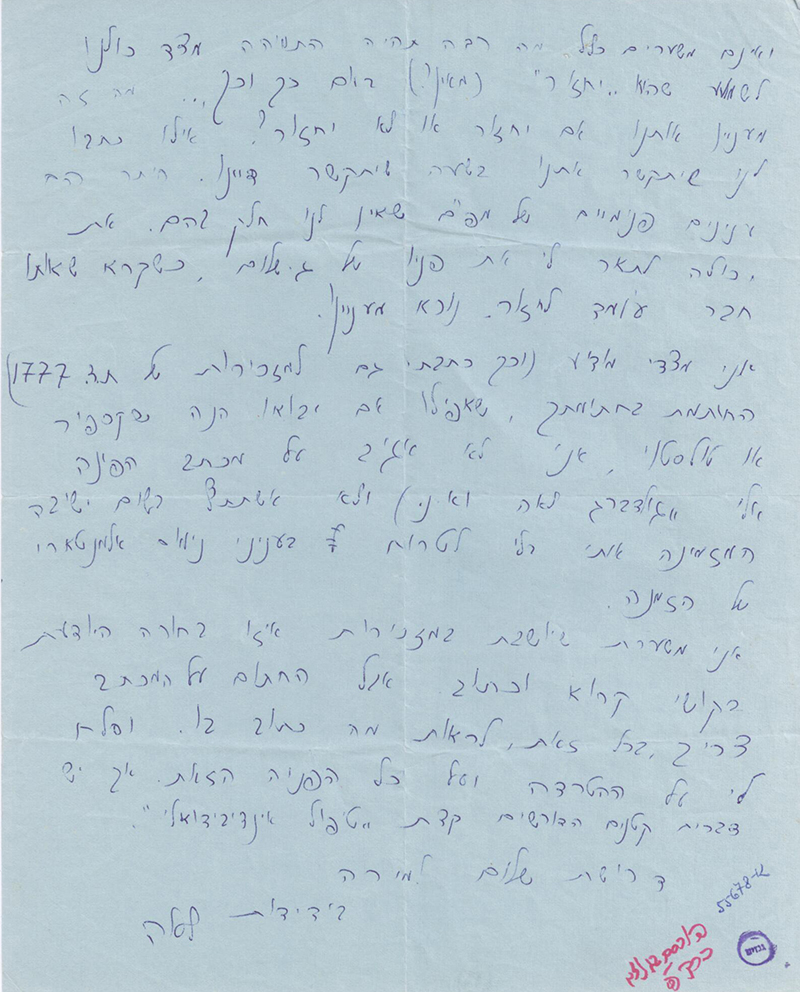 ואינם משערים כלל מה רבה תהיה התמיהה מצד כולנו
לשמע שהוא "יחזור" (מאין?) ביום כך וכך... מה זה
מעניין אותנו אם יחזור או לא יחזור? אילו כתבו
לנו שיתקשר אתנו בשעה שיתקשר דיינו. היתר הם
ענינים פנימיים של מפ"ם שאין לנו חלק בהם. את
יכולה לתאר לי את פניו של ג. שלום, כשקרא שאותו
חבר עומד לחזור. נורא מעניין!
אני מצדי מודיע וכתבתי גם למזכירות של תד. 1777)
החותמת בחתימתך, שאפילו אם יבואו הנה שקספיר
או טולסטוי, אני לא אגיב על מכתב הפונה
אלי "גולדברג לאה ואני) ולא אשתתף בשום ישיבה
המזמינה אותי בלי לטרוח בעניני נימוס אלמנטארי
של הזמנה.
אני משערת שיושבת במזכירות איזו בחורה היודעת
בקושי קרוא וכתוב. אבל החתום על המכתב
צריך, בכל זאת, לראות מה כתוב בו. וסלח
לי על ההטרדה ועל כל הפניה הזאת. אך יש
דברים קטנים הדורשים קצת "טיפול אינדיבידואלי".
דרישת שלום למירה
בידידות לאה
55678-א